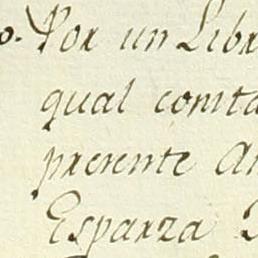 o. Por un Libr
qual consta
presente A
Esparza